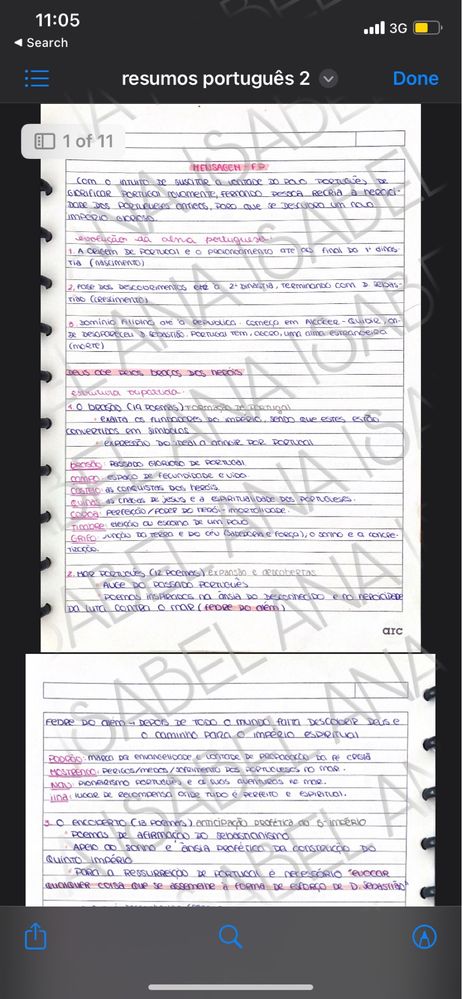 11:05
3G
◀ Search
resumos português 2
Done
1 of 11
MENSAGEM - F.P.
Com o intuito de suscitar a vontade do povo português de
glorificar Portugal novamente, Fernando Pessoa recria a heroici-
dade dos portugueses antigos, para que se descubra um novo
império glorioso.
evolução da alma portuguesa:
1. A origem de Portugal e o até ao final da 1ª dinas-
tia (nascimento)
2. Fase dos descobrimentos até à 2ª dinastia, terminando com D. Sebas-
tião (crescimento)
3. Domínio filipino até à República. Começo em Alcácer-Quibir, on-
de desapareceu D. Sebastião. Portugal tem, agora, uma alma estrangeira
(morte)
Deus age pelos braços dos heróis
estrutura tripartida:
1. O Brasão (19 poemas) formação de Portugal
· exalta os fundadores do império, sendo que estes estão
convertidos em símbolos
· expressão do ideal a atingir por Portugal
Brasão: passado glorioso de Portugal
Campo: espaço de fecundidade e vida.
Castelo: as conquistas dos heróis.
Quinas: as chagas de Jesus e a espiritualidade dos portugueses.
Coroa: perfeição/poder do herói - imortalidade.
Timbre: eleição ou escolha de um povo
Grifo: junção da terra e do céu (sabedoria e força), o sonho e a concre-
tização.
2. Mar Português (12 poemas) expansão e descobertas
· Auge do passado português
· Poemas inspirados na ânsia do desconhecido e no heroicidade
da luta contra o mar (febre do além)
arc
Febre do além → depois de todo o mundo falta descobrir Deus e
o caminho para o império espiritual
Padrão: marca da e vontade de propagação da fé cristã
Mostrengo: perigos/medos/sofrimento dos portugueses no mar.
Nau: pioneirismo português e as suas aventuras no mar.
Ilha: lugar de recompensa onde tudo é perfeito e espiritual.
3. O Encoberto (13 poemas) antecipação profética do 5º império
· Poemas de afirmação do sebastianismo
· Apelo ao sonho e ânsia profética da construção do
Quinto Império
· Para a ressurreição de Portugal é necessário "evocar
qualquer coisa que se assemelhe à forma de esforço de D. Sebastião"
ANA ISABEL